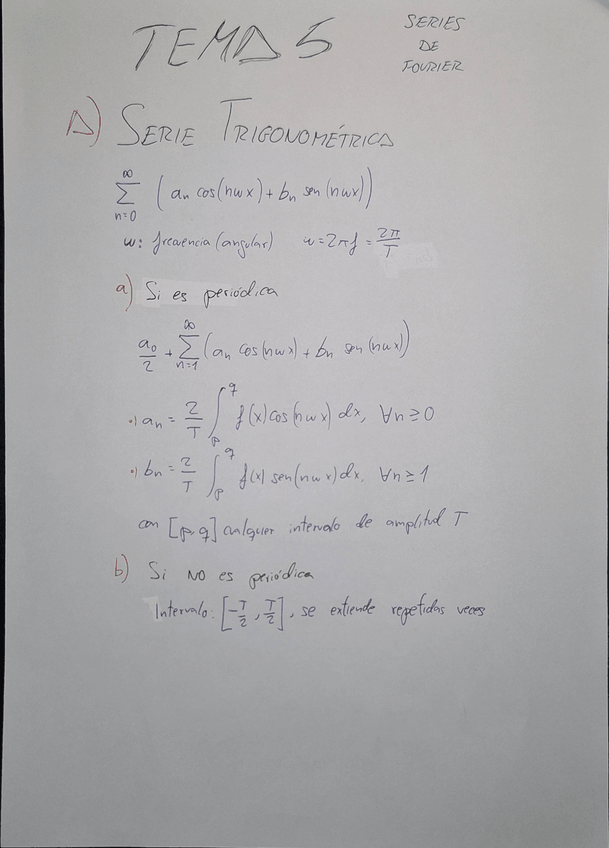 TEMA 5
SERIES
DE
FOURIER
A) SERIE TRIGONOMÉTRICA
∞
∑ (aₙ cos(nwx) + bₙ sen(nwx))
n=0
w: frecuencia (angular) w = 2πf = 2π/T
a) Si es periódica
a₀/2 + ∑_{n=1}^{∞} (aₙ cos(nwx) + bₙ sen(nwx))
·) aₙ = 2/T ∫_p^q f(x) cos(nwx) dx, ∀n ≥ 0
·) bₙ = 2/T ∫_p^q f(x) sen(nwx) dx, ∀n ≥ 1
con [p,q] cualquier intervalo de amplitud T
b) Si NO es periódica
Intervalo: [-T/2, T/2], se extiende repetidas veces